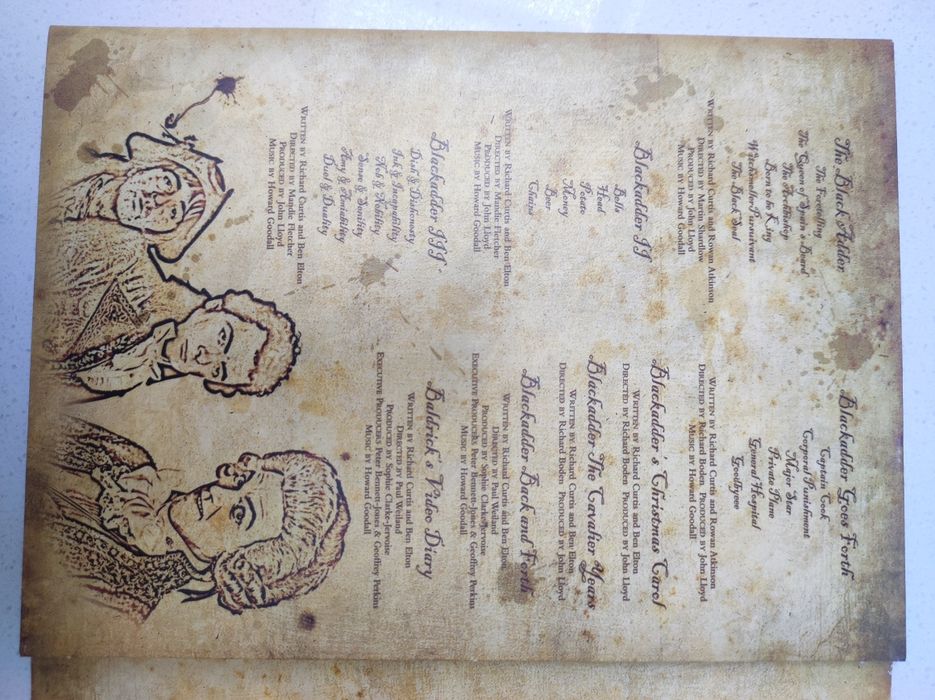 The Black Adder
The Foretelling
The Queen of Spain's Beard
The Archbishop
Born to be King
Witchsmeller Pursuivant
The Black Seal
Written by Richard Curtis and Rowan Atkinson
Directed by Martin Shardlow
Produced by John Lloyd
Music by Howard Goodall
Blackadder II
Bells
Head
Potato
Money
Beer
Chains
Written by Richard Curtis and Ben Elton
Directed by Mandie Fletcher
Produced by John Lloyd
Music by Howard Goodall
Blackadder III
Dish & Dishonesty
Ink & Incapability
Nob & Nobility
Sense & Senility
Amy & Amiability
Duel & Duality
Written by Richard Curtis and Ben Elton
Directed by Mandie Fletcher
Produced by John Lloyd
Music by Howard Goodall
Blackadder Goes Forth
Captain Cook
Corporal Punishment
Major Star
Private Plane
General Hospital
Goodbyeee
Written by Richard Curtis and Rowan Atkinson
Directed by Richard Boden Produced by John Lloyd
Music by Howard Goodall
Blackadder's Christmas Carol
Written by Richard Curtis and Ben Elton
Directed by Richard Boden Produced by John Lloyd
Blackadder The Cavalier Years
Written by Richard Curtis and Ben Elton
Directed by Richard Boden Produced by John Lloyd
Blackadder Back and Forth
Written by Richard Curtis and Ben Elton
Directed by Paul Weiland
Produced by Sophie Clarke-Jervoise
Executive Producers Peter Bennett-Jones & Geoffrey Perkins
Music by Howard Goodall
Baldrick's Video Diary
Written by Richard Curtis and Ben Elton
Directed by Paul Weiland
Produced by Sophie Clarke-Jervoise
Executive Producers Peter Bennett-Jones & Geoffrey Perkins
Music by Howard Goodall